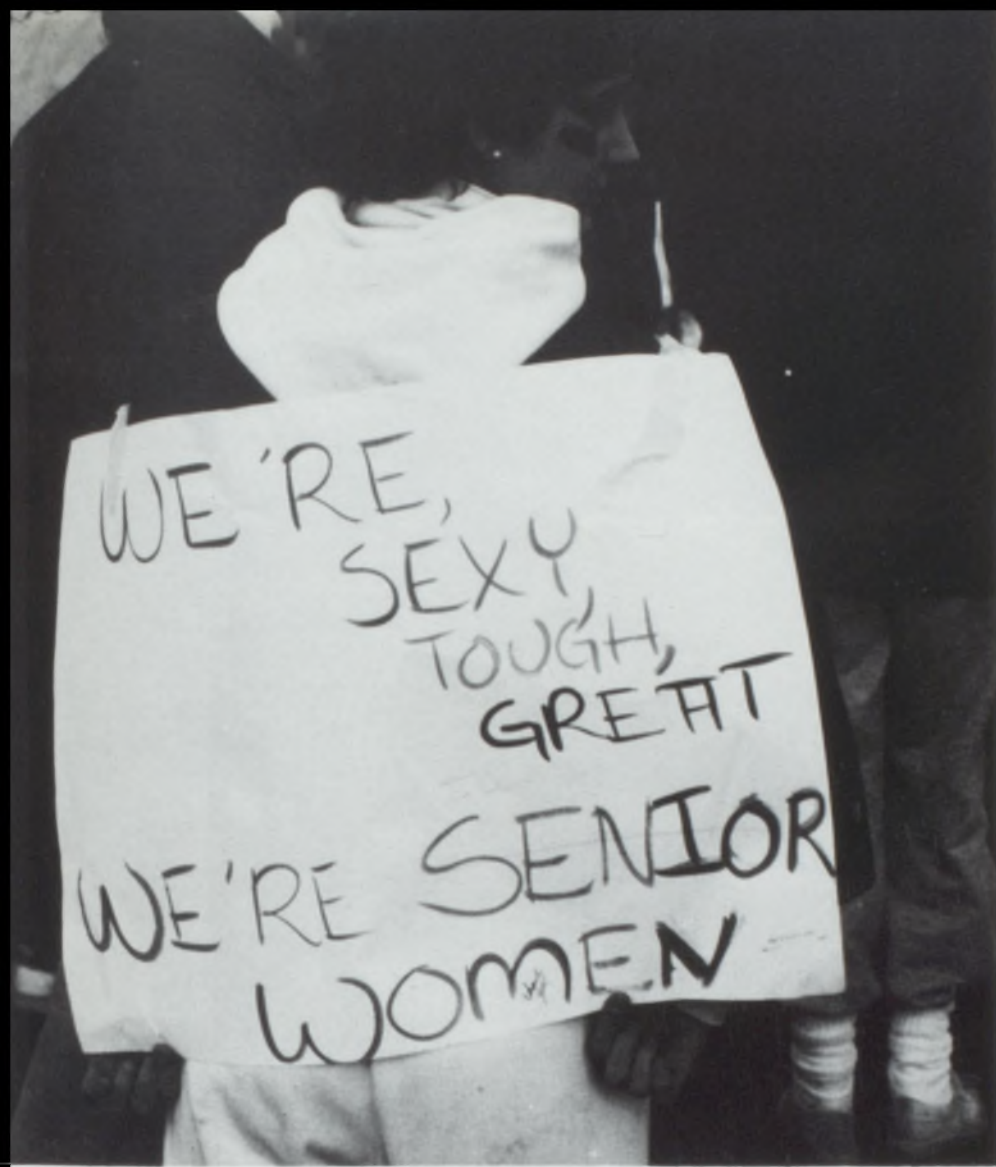 WE'RE,
SEXY,
TOUGH,
GREAT
WE'RE SENIOR
WOMEN